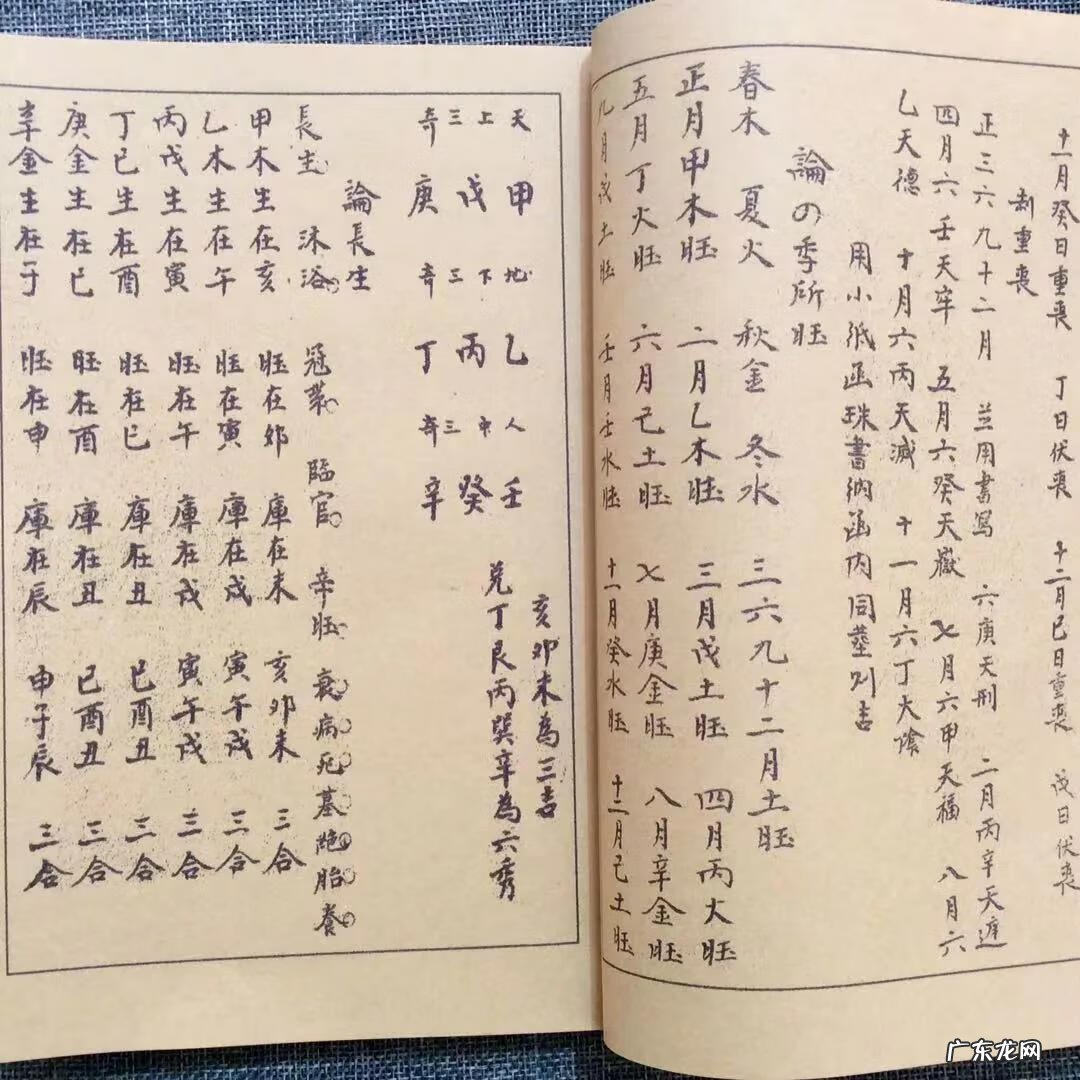 十一月癸日重丧 丁日伏丧 十二月巳日重丧 戊日伏丧
制重丧
正三六九十二月 兰用書写 六庚天刑 二月丙辛天遅
四月六壬天牢 五月六癸天嶽 七月六甲天福 八月六
乙天德 十月六丙天滅 十一月六丁大陰
用小紙函珠書纳函内同塟則吉
論の季所旺
春木 夏火 秋金 冬水 三六九十二月土旺
正月甲木旺 二月乙木旺 三月戊土旺 四月丙火旺
五月丁火旺 六月己土旺 七月庚金旺 八月辛金旺
九月戊土旺 壬月壬水旺 十一月癸水旺 十二月己土旺
亥卯未為三吉
兑丁艮丙巽辛為六秀
天 甲 地 乙 人 壬
上 戊 下 丙 中 癸
三 三 三
奇 庚 奇 丁 奇 辛
論長生
長生 沐浴 冠 臨官 帝旺 衰病死墓絶胎養
甲木生在亥 旺在卯 庫在未 亥卯未 三合
乙木生在午 旺在寅 庫在戌 寅午戌 三合
丙戊生在寅 旺在午 庫在戌 寅午戌 三合
丁巳生在酉 旺在巳 庫在丑 巳酉丑 三合
庚金生在巳 旺在酉 庫在丑 巳酉丑 三合
辛金生在子 旺在申 庫在辰 申子辰 三合
广东龙网